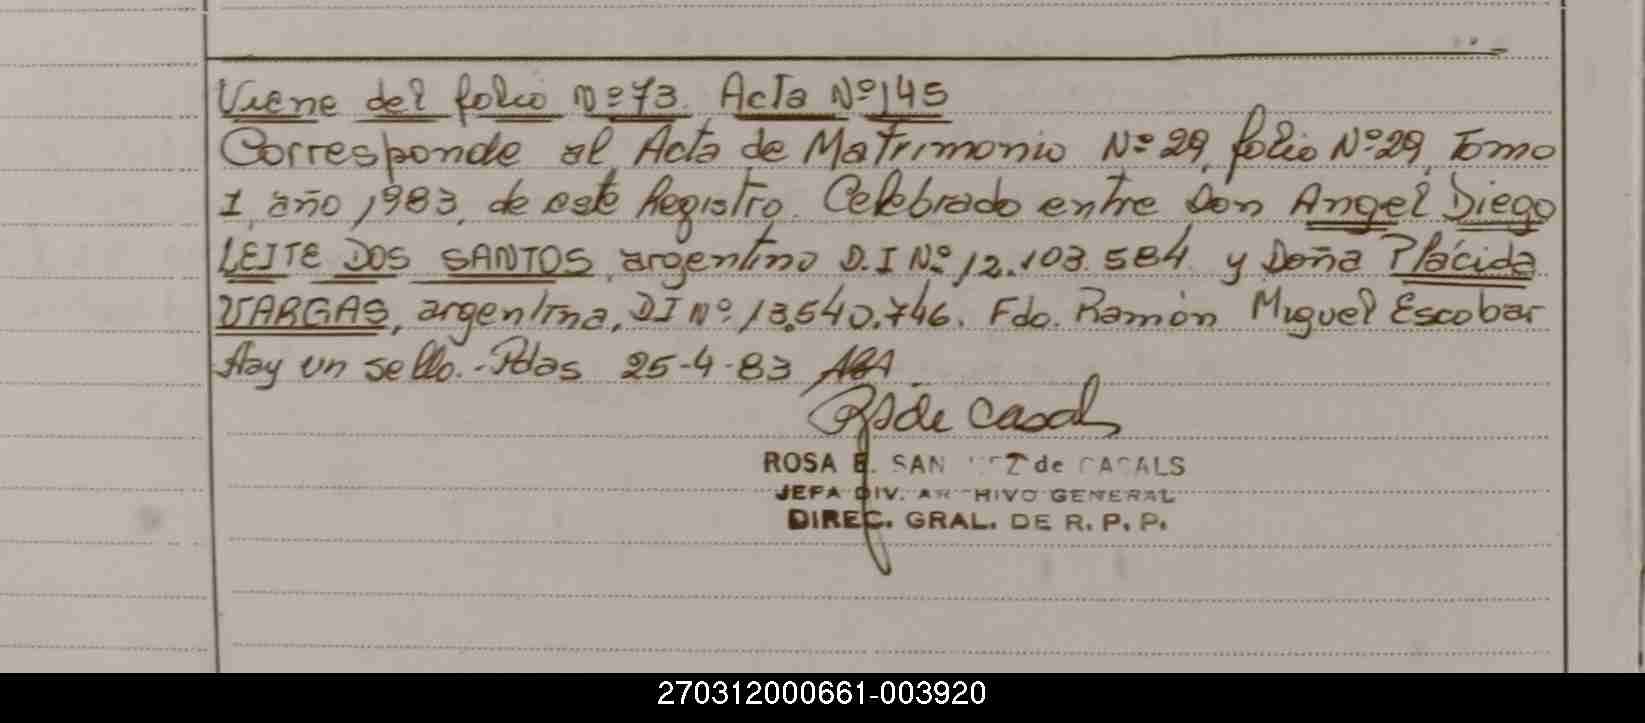 Viene del folio Nº 73. Acta Nº 145
Corresponde al Acta de Matrimonio Nº 29, folio Nº 29, Tomo
1, año 1983, de este Registro. Celebrado entre Don Angel Diego
LEITE DOS SANTOS, argentino D.I Nº 12.103.584 y Doña Plácida
VARGAS, argentina, DI Nº 13.540.746. Fdo. Ramón Miguel Escobar
Hay un sello.- Pdas 25-4-83
de Casals
ROSA E. SAN Z de CASALS
JEFA DIV. ARCHIVO GENERAL
DIREC. GRAL. DE R. P. P.
270312000661-003920